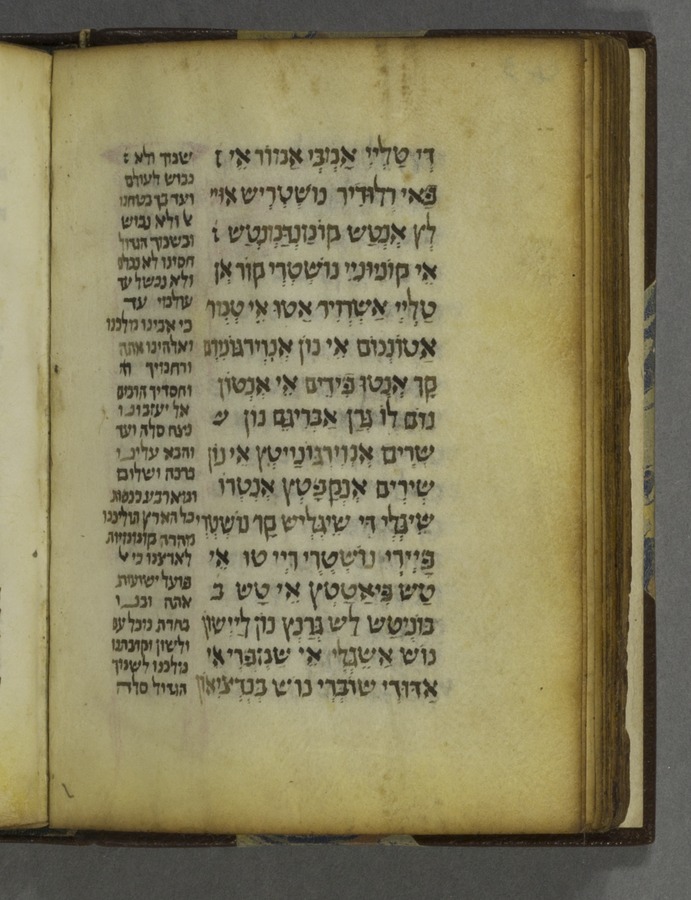 די טליי אמבי אמור אי
פאי רלודיר נושטריש אוי
לץ אנטש קומנדמנטש
אי קומוניי נושטרי קור אן
טליי אשרדיר אטו אי טמור
אטונום אי נון אנוירגונים
קר אנטו פידים אי אנטון
נום לו גרן אבריגם נון
שרים אנוירגונייטץ אי נון
שירים אנקפטץ אנטרו
שיגלי די שיגליש קר נושטרי
פיירי נושטרי דיי טו אי
טש פיאטטץ אי טש ב
בוניטש לש גרנץ נון לייישון
נוש אשגלי אי שנזפרי אי
אדורי שוברי נוש בנדציאון
שמך ולא
נבוש לעולם
ועד כך בטחנו
ולא נבוש
ובשמך הגדול
חסינו לא נכלם
ולא נכשל עד
עולמי עד
כי אבינו מלכנו
ואלהינו אתה
ורחמיך יי
וחסדיך הרבים
אל יעזבונו
נצח סלה ועד
והבא עלינו
ברכה ושלום
ומארבע כנפות
כל הארץ תוליכנו
מהרה קוממיות
לארצנו כי
פועל ישועות
אתה ובנו
בחרת מכל עם
ולשון וקרבתנו
מלכנו לשמך
הגדול סלה